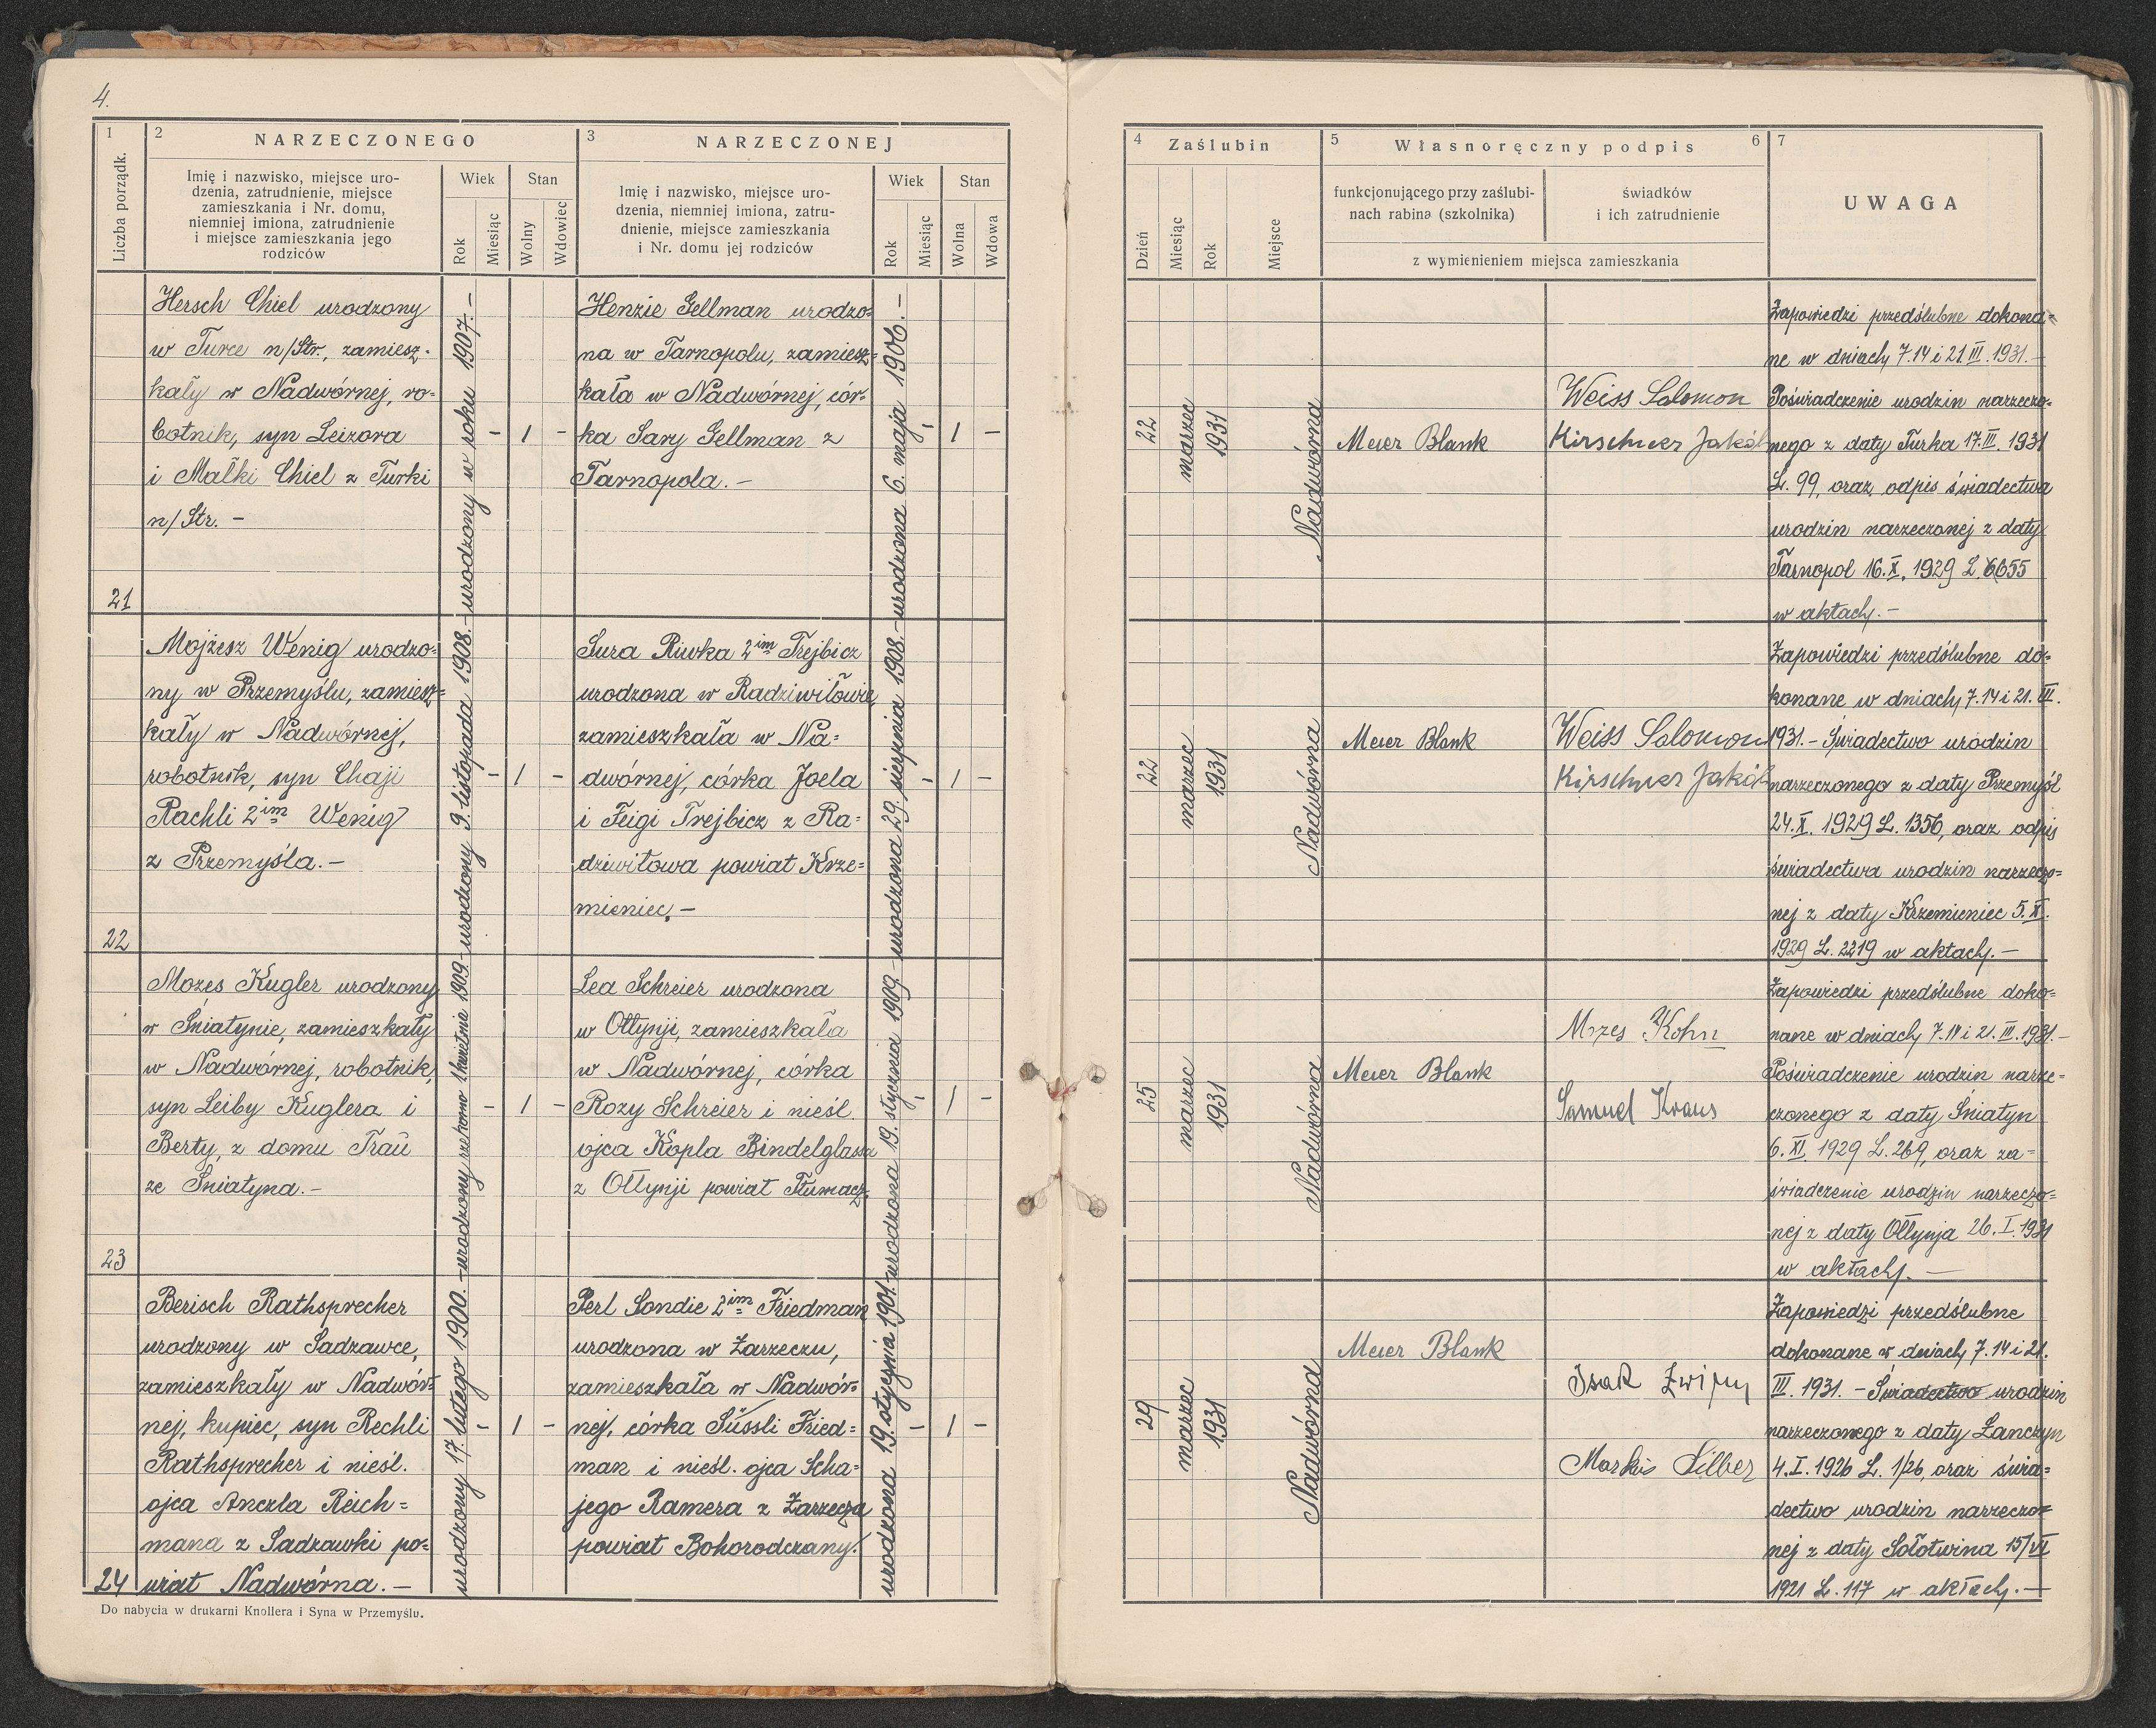 4.
1
2
NARZECZONEGO
3
NARZECZONEJ
Liczba porządk.
Imię i nazwisko, miejsce uro-
dzenia, zatrudnienie, miejsce
zamieszkania i Nr. domu,
niemniej imiona, zatrudnienie
i miejsce zamieszkania jego
rodziców
Wiek
Stan
Rok
Miesiąc
Wolny
Wdowiec
Imię i nazwisko, miejsce uro-
dzenia, niemniej imiona, zatru-
dnienie, miejsce zamieszkania
i Nr. domu jej rodziców
Wiek
Stan
Rok
Miesiąc
Wolna
Wdowa
4
Zaślubin
5
Własnoręczny podpis
6
7
Dzień
Miesiąc
Rok
Miejsce
funkcjonującego przy zaślubi-
nach rabina (szkolnika)
świadków
i ich zatrudnienie
z wymienieniem miejsca zamieszkania
UWAGA
21
Hersch Chiel urodzony
w Turce n/Str., zamiesz-
kały w Nadwórnej, ro-
botnik, syn Leizora
i Małki Chiel z Turki
n/Str. -
urodzony w roku 1907.-
- 1 -
Henzie Gellman urodzo-
na w Tarnopolu, zamiesz=
kała w Nadwórnej, cór-
ka Sary Gellman z
Tarnopola. -
urodzona 6. maja 1906.-
- 1 -
22
marzec
1931
Nadwórna
Meier Blank
Weiss Salomon
Kirschner Jakób
Zapowiedzi przedślubne dokona=
ne w dniach 7.14 i 21 III. 1931.-
Poświadczenie urodzin narzeczo-
nego z daty Turka 17.III. 1931
L. 99, oraz odpis świadectwa
urodzin narzeczonej z daty
Tarnopol 16.X. 1929 L. 6655
w aktach. -
22
Mojżesz Wenig urodzo-
ny w Przemyślu, zamiesz=
kały w Nadwórnej,
robotnik, syn Chaji
Rachli 2im Wenig
z Przemyśla. -
urodzony 9. listopada 1908.-
- 1 -
Sura Riwka 2im Trejbicz
urodzona w Radziwiłowie,
zamieszkała w Na=
dwórnej, córka Joela
i Feigi Trejbicz z Ra=
dziwiłowa powiat Krze=
mieniec. -
urodzona 29. sierpnia 1908.-
- 1 -
22
marzec
1931
Nadwórna
Meier Blank
Weiss Salomon
Kirschner Jakób
Zapowiedzi przedślubne do-
konane w dniach 7.14 i 21. III.
1931. - Świadectwo urodzin
narzeczonego z daty Przemyśl
24.X. 1929 L. 1356, oraz odpis
świadectwa urodzin narzeczo=
nej z daty Krzemieniec 5.X.
1929 L. 2219 w aktach. -
23
Mozes Kugler urodzony
w Śniatynie, zamieszkały
w Nadwórnej, robotnik,
syn Leiby Kuglera i
Berty, z domu Trau
ze Śniatyna. -
urodzony rzekomo 1 kwietnia 1909.-
- 1 -
Lea Schreier urodzona
w Ottynji, zamieszkała
w Nadwórnej, córka
Rozy Schreier i nieśl.
ojca Kopla Bindelglasa
z Ottynji powiat Tłumacz.
urodzona 19. stycznia 1909.-
- 1 -
25
marzec
1931
Nadwórna
Meier Blank
Mozes Kohn
Samuel Kraus
Zapowiedzi przedślubne doko=
nane w dniach 7.14 i 21. III. 1931.-
Poświadczenie urodzin narze-
czonego z daty Śniatyn
6. XI. 1929 L. 269, oraz za=
świadczenie urodzin narzeczo=
nej z daty Ottynja 26. I. 1931
w aktach. -
24
Berisch Rathsprecher
urodzony w Sadzawce,
zamieszkały w Nadwór=
nej, kupiec, syn Rechli
Rathsprecher i nieśl.
ojca Anczla Reich=
mana z Sadzawki po=
wiat Nadwórna. -
urodzony 17. lutego 1900.-
- 1 -
Perl Sondie 2im Friedman
urodzona w Zarzeczu,
zamieszkała w Nadwór=
nej, córka Süssli Fried=
man i nieśl. ojca Scha=
jego Ramera z Zarzecza
powiat Bohorodczany.
urodzona 19. stycznia 1901.-
- 1 -
29
marzec
1931
Nadwórna
Meier Blank
Isak
Markus Silber
Zapowiedzi przedślubne
dokonane w dniach 7.14 i 21.
III. 1931. - Świadectwo urodzin
narzeczonego z daty Łanczyn
4.I. 1926 L. 1/26, oraz świa=
dectwo urodzin narzeczo=
nej z daty Sołotwina 15/VI
1921 L. 117 w aktach. -
Do nabycia w drukarni Knollera i Syna w Przemyślu.